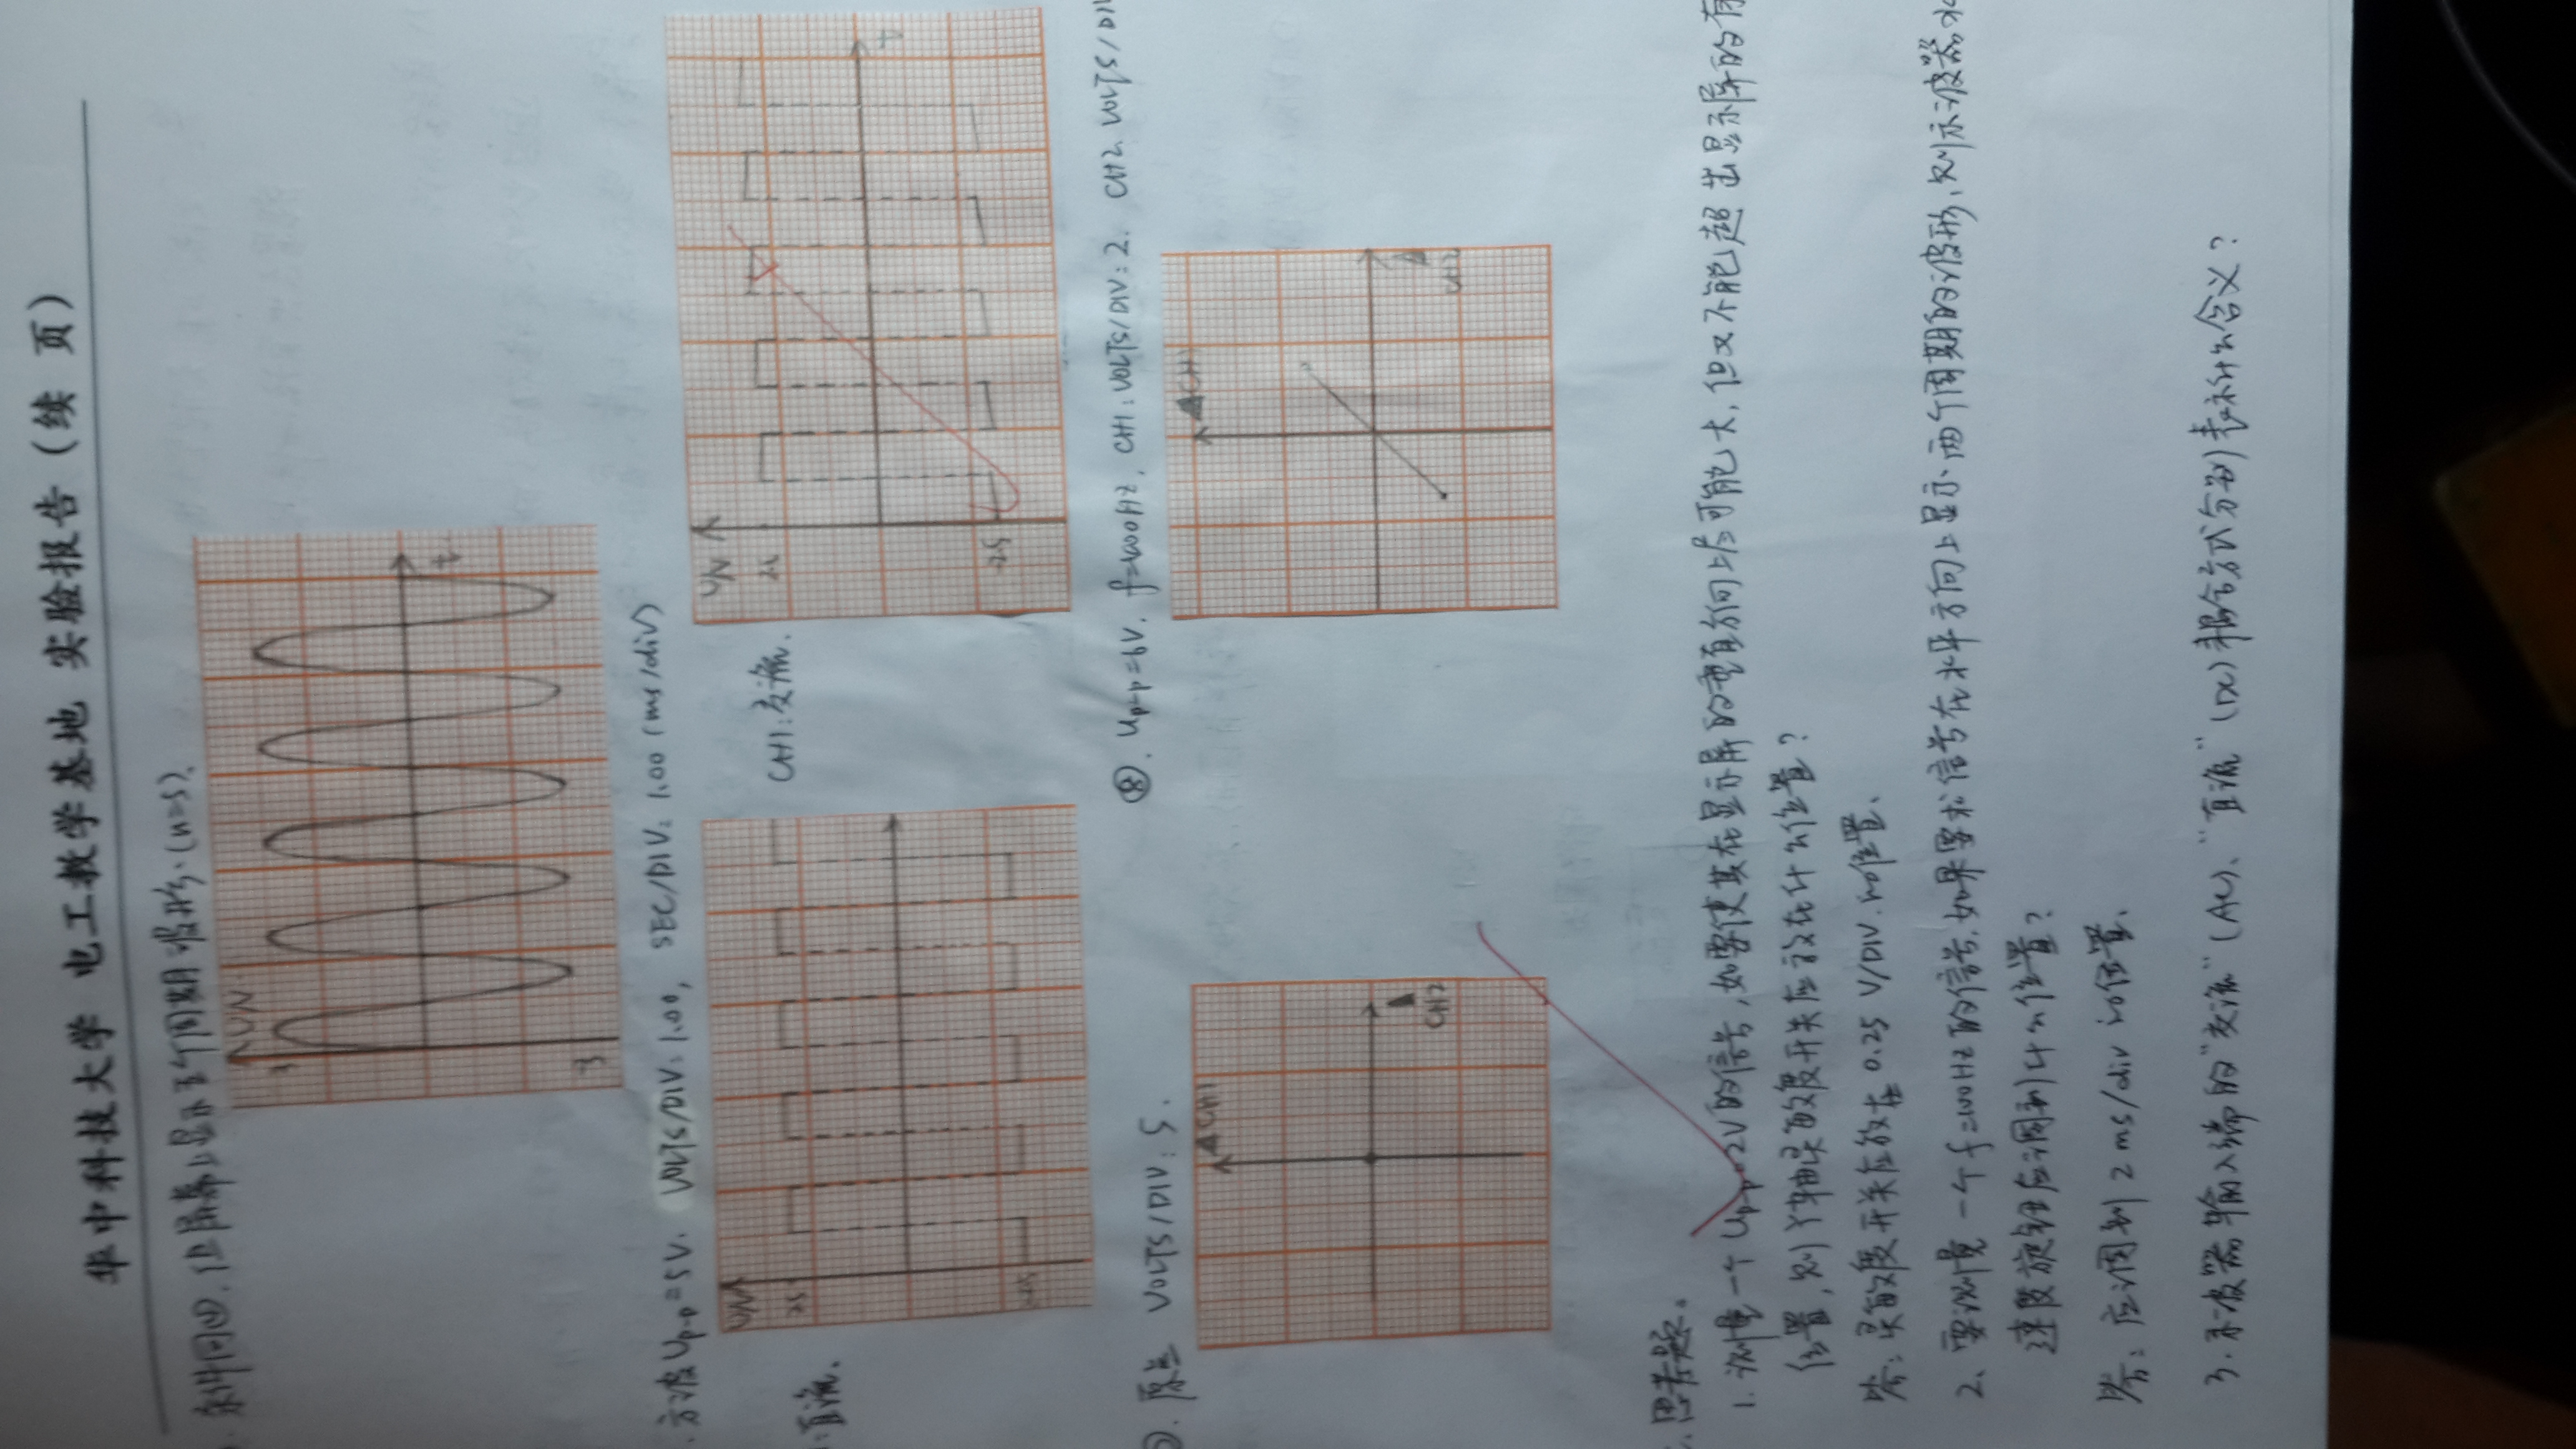 华中科技大学 电工教学基地 实验报告（续 页）
. 条件同④. 但屏幕上显示五个周期波形.(n=5).
U/V
3
t
3
. 方波 Up-p=5V. VOLTS/DIV: 1.00, SEC/DIV: 1.00 (ms/div)
U/V
2.5
-2.5
:直流.
CH1:交流.
U/V
2.5
-2.5
t
. 原点 VOLTS/DIV: 5.
⑧. Up-p=6V. f=1000HZ, CH1:VOLTS/DIV: 2. CH2 VOLTS/DIV
CH1
CH2
CH1
CH2
. 思考题。
1. 测量一个 Up-p=2V的信号,如要使其在显示屏的垂直方向上尽可能大,但又不能超出显示屏的有
位置,则Y轴灵敏度开关应放在什么位置?
答:灵敏度开关应放在 0.25 V/DIV.的位置.
2、要测量一个f=100HZ的信号.如果要求信号在水平方向上显示两个周期的波形,则示波器水
速度旋钮应调到什么位置?
答: 应调到 2 ms/div 的位置.
3.示波器输入端的"交流"(AC)、"直流"(DC)耦合方式分别表示什么含义?